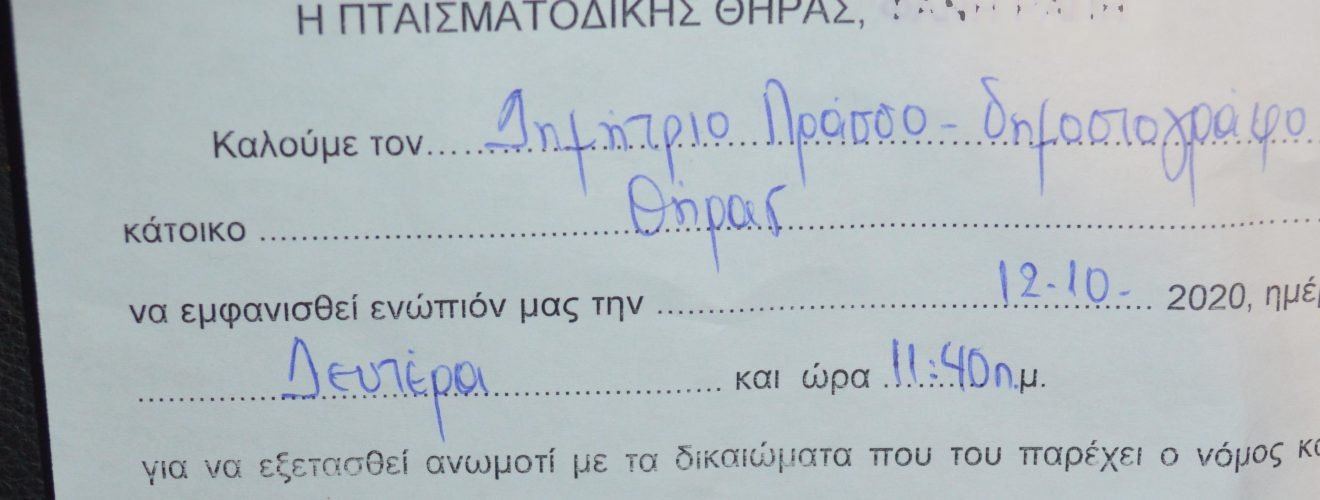 Η ΠΤΑΙΣΜΑΤΟΔΙΚΗΣ ΘΗΡΑΣ,
Καλούμε τον.....Δημήτριο Πράσσο - δημοσιογράφο
κάτοικο ..... Θήρας .....
να εμφανισθεί ενώπιόν μας την ..... 12-10- ..... 2020, ημέ
..... Δευτέρα ..... και ώρα ..11:40π.μ.
για να εξετασθεί ανωμοτί με τα δικαιώματα που του παρέχει ο νόμος κα